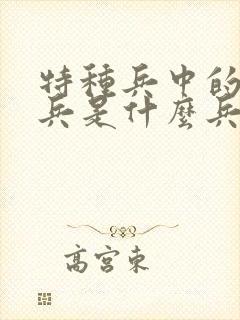 特種兵中的
兵是什麼兵
高宮東